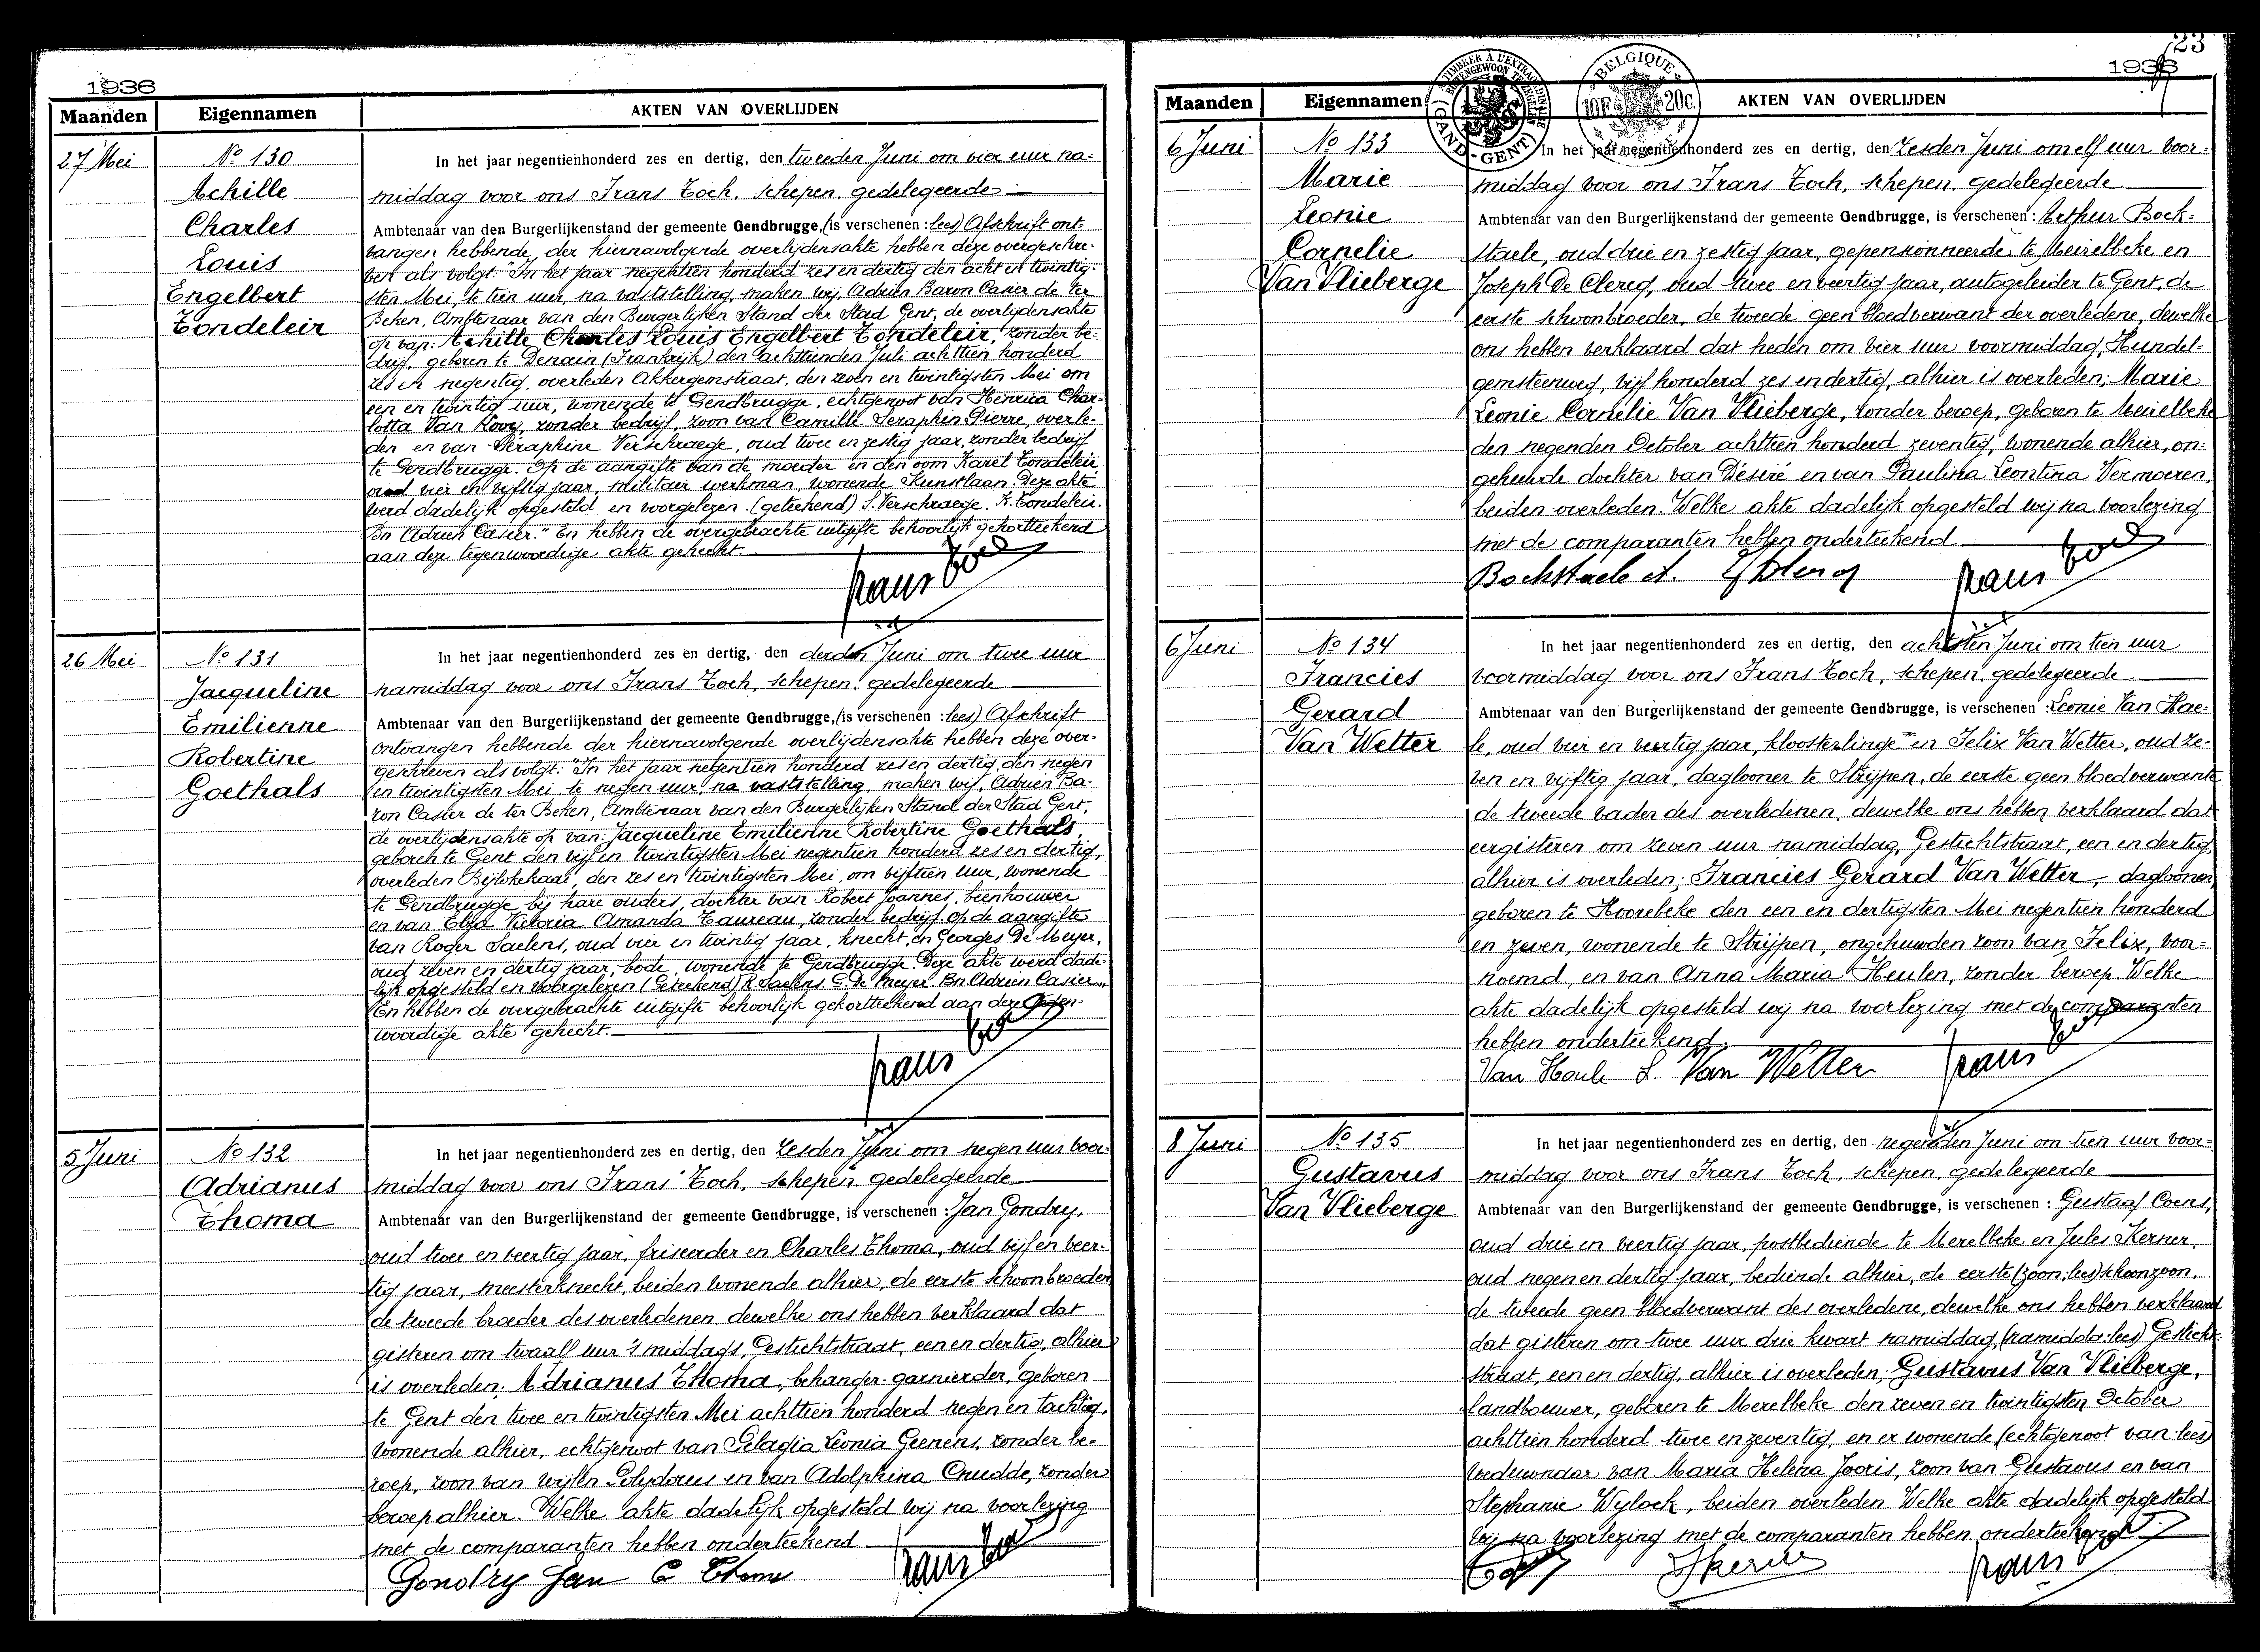 1936
Maanden Eigennamen AKTEN VAN OVERLIJDEN
27 Mei
No 130
Achille
Charles
Louis
Engelbert
Tondeleir
In het jaar negentienhonderd zes en dertig, den tweeden Juni om vier uur na=
middag voor ons Frans Toch, schepen, gedelegeerde
Ambtenaar van den Burgerlijkenstand der gemeente Gendbrugge, (is verschenen : lees) Afschrift ont-
vangen hebbende, der hiernavolgende overlijdensakte hebben deze overgeschre-
ven als volgt: "In het jaar negentien honderd zes en dertig den acht en twintig-
sten Mei, te tien uur, na vaststelling, maken wij, Adrien Baron Casier de ter
Beken, Ambtenaar van den Burgerlijken Stand der Stad Gent, de overlijdensakte
op van: Achille Charles Louis Engelbert Tondeleir, zonder be-
drijf, geboren te Denain (Frankrijk) den achttienden Juli achttien honderd
zes en negentig, overleden Akkergemstraat, den zeven en twintigsten Mei om
een en twintig uur, wonende te Gendbrugge, echtgenoot van Henrica Char-
lotta Van Rooy, zonder bedrijf, zoon van Camille Seraphin Pierre, overle-
den en van Séraphine Verschraege, oud twee en zestig jaar, zonder bedrijf
te Gendbrugge. Op de aangifte van de moeder en den oom Karel Tondeleir
oud vier en vijftig jaar, militair werkman, wonende Kunstlaan. Deze akte
werd dadelijk opgesteld en voorgelezen. (geteekend) S. Verschraege. K. Tondeleir.
Bn Adrien Casier." En hebben de overgebrachte uitgifte behoorlijk gekortteekend
aan deze tegenwoordige akte gehecht.
Frans Toch
26 Mei
No 131
Jacqueline
Emilienne
Robertine
Goethals
In het jaar negentienhonderd zes en dertig, den derden Juni om twee uur
namiddag voor ons Frans Toch, schepen, gedelegeerde
Ambtenaar van den Burgerlijkenstand der gemeente Gendbrugge, (is verschenen : lees) Afschrift
ontvangen hebbende der hiernavolgende overlijdensakte hebben deze over-
geschreven als volgt: "In het jaar negentien honderd zes en dertig, den negen
en twintigsten Mei, te negen uur, na vaststelling, maken wij, Adrien Ba-
ron Casier de ter Beken, Ambtenaar van den Burgerlijken Stand der Stad Gent,
de overlijdensakte op van: Jacqueline Emilienne Robertine Goethals,
geboren te Gent den vijf en twintigsten Mei negentien honderd zes en dertig,
overleden Bijlokekaai, den zes en twintigsten Mei, om vijftien uur, wonende
te Gendbrugge bij hare ouders, dochter van Robert Joannes, beenhouwer
en van Elza Victoria Amanda Taureau, zonder bedrijf, op de aangifte
van Roger Saelens, oud vier en twintig jaar, knecht, en Georges De Meyer,
oud zeven en dertig jaar, bode, wonende te Gendbrugge. Deze akte werd dade-
lijk opgesteld en voorgelezen (Geteekend) R. Saelens. G. De Meyer. Bn Adrien Casier."
En hebben de overgebrachte uitgifte behoorlijk gekortteekend aan deze tegen-
woordige akte gehecht.
Frans Toch
5 Juni
No 132
Adrianus
Thoma
In het jaar negentienhonderd zes en dertig, den zesden Juni om negen uur voor-
middag voor ons Frans Toch, schepen gedelegeerde
Ambtenaar van den Burgerlijkenstand der gemeente Gendbrugge, is verschenen : Jan Gondry,
oud twee en veertig jaar, friseerder en Charles Thoma, oud vijf en veer-
tig jaar, meesterknecht, beiden wonende alhier, de eerste schoonbroeder
de tweede broeder des overledenen, dewelke ons hebben verklaard dat
gisteren om twaalf uur 's middags, Gestichtstraat, een en dertig, alhier
is overleden; Adrianus Thoma, behanger-garnierder, geboren
te Gent den twee en twintigsten Mei achttien honderd negen en tachtig,
wonende alhier, echtgenoot van Pelagia Leonia Geenens, zonder be-
roep, zoon van wijlen Polydorus en van Adolphina Cnudde, zonder
beroep alhier. Welke akte dadelijk opgesteld wij na voorlezing
met de comparanten hebben onderteekend
Gondry Jan C Thoma Frans Toch
23
1936
Maanden Eigennamen AKTEN VAN OVERLIJDEN
GAND - GENT
BELGIQUE
10F 20c.
6 Juni
No 133
Marie
Leonie
Cornelie
Van Vlieberge
In het jaar negentienhonderd zes en dertig, den zesden Juni om elf uur voor-
middag voor ons Frans Toch, schepen, gedelegeerde
Ambtenaar van den Burgerlijkenstand der gemeente Gendbrugge, is verschenen : Arthur Bock-
staele, oud drie en zestig jaar, gepensionneerde te Meirelbeke en
Joseph De Clercq, oud twee en veertig jaar, autogeleider te Gent, de
eerste schoonbroeder, de tweede geen bloedverwant der overledene, dewelke
ons hebben verklaard dat heden om vier uur voormiddag, Hundel-
gemsteenweg, vijf honderd zes en dertig, alhier is overleden; Marie
Leonie Cornelie Van Vlieberge, zonder beroep, geboren te Meirelbeke
den negenden October achttien honderd zeventig, wonende alhier, on-
gehuwde dochter van Désiré en van Paulina Leontina Vermoeren,
beiden overleden. Welke akte dadelijk opgesteld wij na voorlezing
met de comparanten hebben onderteekend
Bockstaele A. Frans Toch
6 Juni
No 134
Francies
Gerard
Van Wetter
In het jaar negentienhonderd zes en dertig, den achtsten Juni om tien uur
voormiddag voor ons Frans Toch, schepen, gedelegeerde
Ambtenaar van den Burgerlijkenstand der gemeente Gendbrugge, is verschenen : Leonie Van Hae-
le, oud vier en veertig jaar, kloosterlinge en Felix Van Wetter, oud ze-
ven en vijftig jaar, daglooner te Strijpen, de eerste geen bloedverwant
de tweede vader des overledenen, dewelke ons hebben verklaard dat
eergisteren om zeven uur namiddag, Gestichtstraat, een en dertig,
alhier is overleden; Francies Gerard Van Wetter, daglooner,
geboren te Hoorebeke den een en dertigsten Mei negentien honderd
en zeven, wonende te Strijpen, ongehuwden zoon van Felix, voor-
noemd, en van Anna Maria Heulen, zonder beroep. Welke
akte dadelijk opgesteld wij na voorlezing met de comparanten
hebben onderteekend.
Van Haele L. Van Wetter Frans Toch
8 Juni
No 135
Gustavus
Van Vlieberge
In het jaar negentienhonderd zes en dertig, den negenden Juni om tien uur voor-
middag voor ons Frans Toch, schepen, gedelegeerde
Ambtenaar van den Burgerlijkenstand der gemeente Gendbrugge, is verschenen : Gustaaf Coens,
oud drie en veertig jaar, postbediende te Merelbeke en Jules Kerner,
oud negen en dertig jaar, bediende alhier, de eerste (zoon: lees) schoonzoon,
de tweede geen bloedverwant des overledene, dewelke ons hebben verklaard
dat gisteren om twee uur drie kwart namiddag, (namiddag: lees) Gesticht-
straat, een en dertig, alhier is overleden; Gustavus Van Vlieberge,
landbouwer, geboren te Merelbeke den zeven en twintigsten October
achttien honderd twee en zeventig, en er wonende (echtgenoot van: lees)
weduwnaar van Maria Helena Jooris, zoon van Gustavus en van
Stephanie Wylock, beiden overleden. Welke akte dadelijk opgesteld
wij na voorlezing met de comparanten hebben onderteekend
Frans Toch